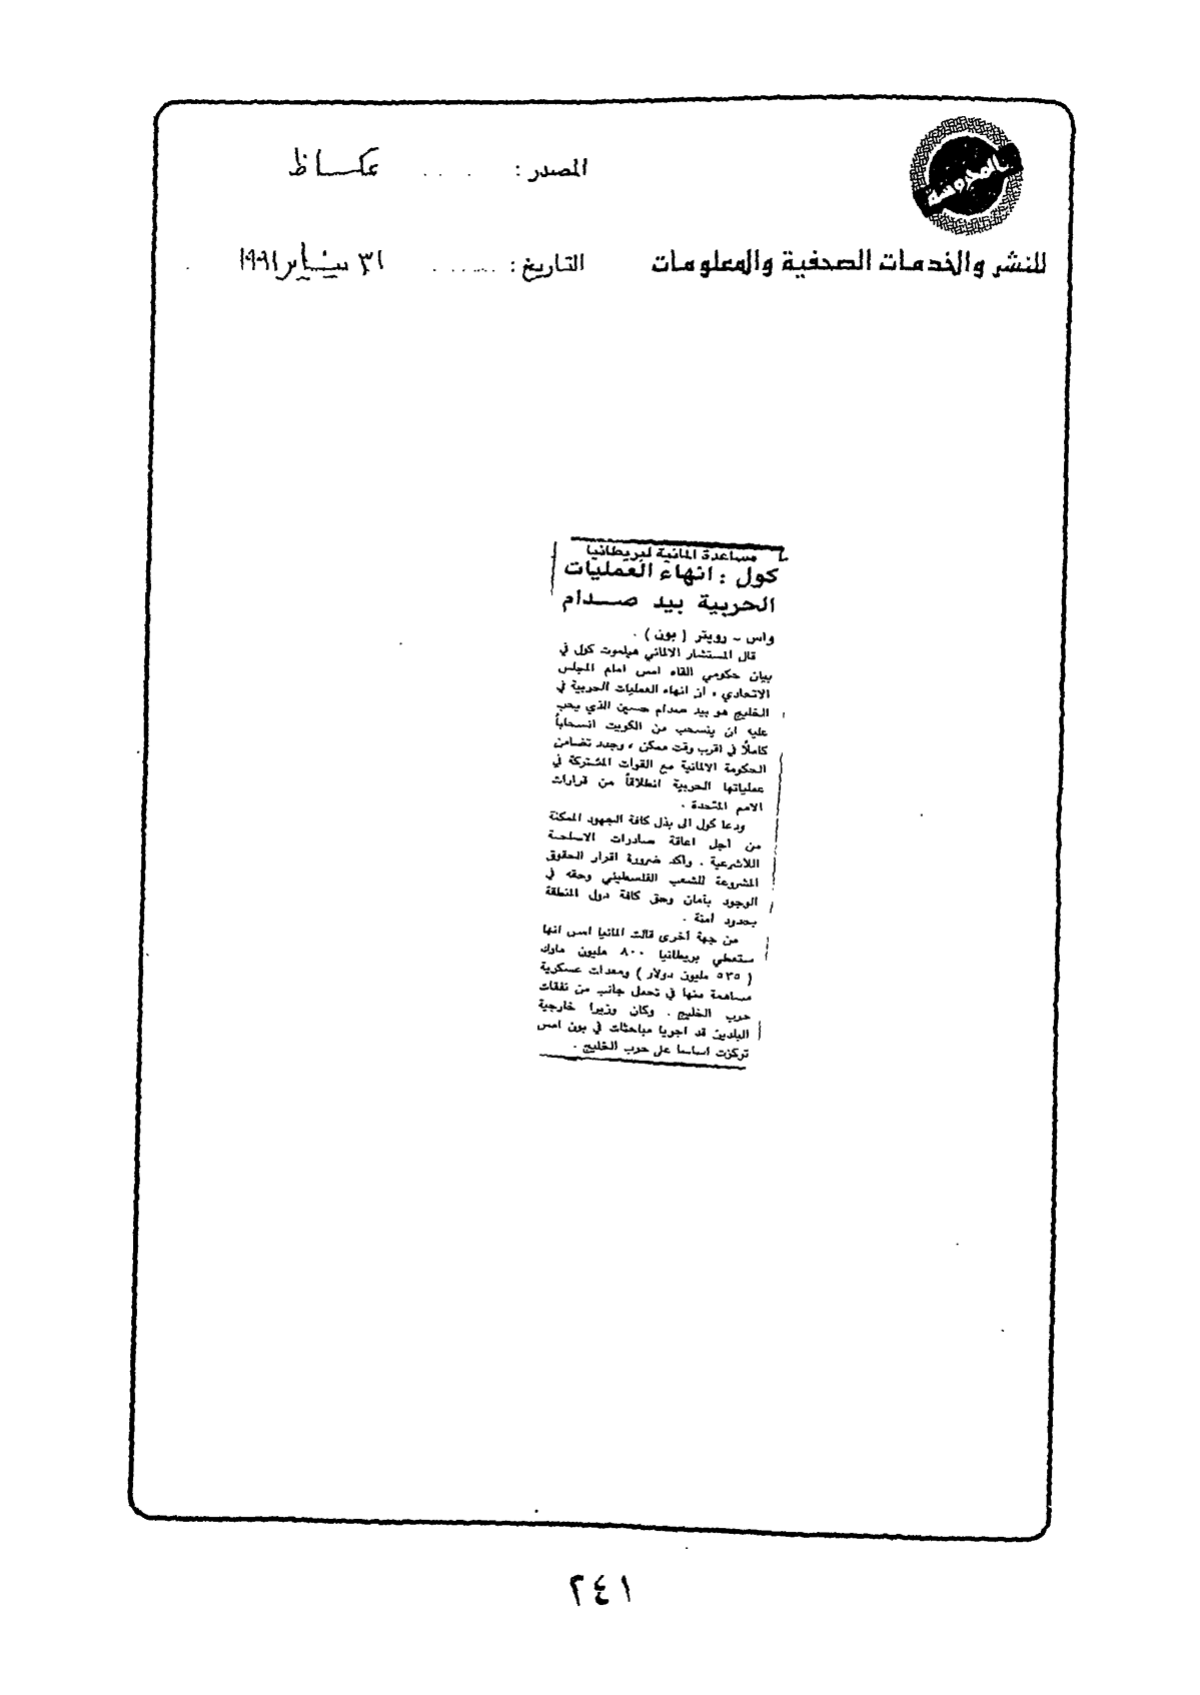 المحروسة
المصدر : . . . . عكاظ
للنشر والخدمات الصحفية والمعلومات
التاريخ : ........ ٣١ يناير ١٩٩١
مساعدة المانية لبريطانيا
كول : انهاء العمليات
الحربية بيد صدام
واس ـ رويتر ( بون ) .
قال المستشار الالماني هيلموت كول في
بيان حكومي القاه امس امام المجلس
الاتحادي ، ان انهاء العمليات الحربية في
الخليج هو بيد صدام حسين الذي يجب
عليه ان ينسحب من الكويت انسحاباً
كاملاً في اقرب وقت ممكن ، وجدد تضامن
الحكومة الالمانية مع القوات المشتركة في
عملياتها الحربية انطلاقاً من قرارات
الامم المتحدة .
ودعا كول الى بذل كافة الجهود الممكنة
من أجل اعاقة صادرات الاسلحة
اللاشرعية . وأكد ضرورة اقرار الحقوق
المشروعة للشعب الفلسطيني وحقه في
الوجود بأمان وحق كافة دول المنطقة
بحدود آمنة .
من جهة أخرى قالت المانيا امس انها
ستعطي بريطانيا ٨٠٠ مليون مارك
( ٥٣٥ مليون دولار ) ومعدات عسكرية
مساهمة منها في تحمل جانب من نفقات
حرب الخليج . وكان وزيرا خارجية
البلدين قد اجريا مباحثات في بون امس
تركزت اساسا على حرب الخليج .
٢٤١